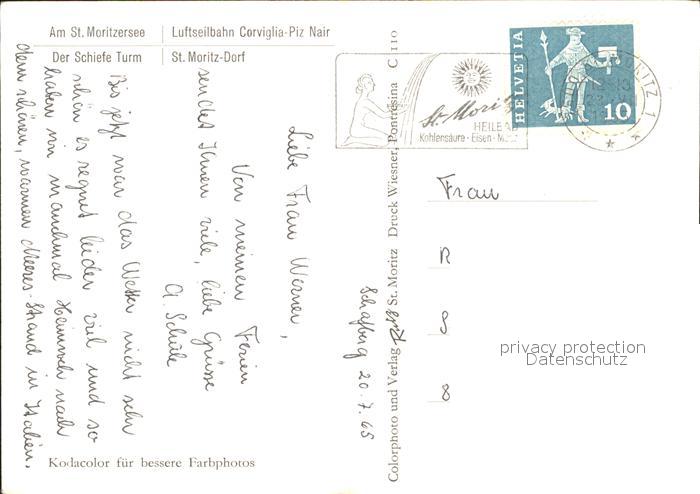 Am St. Moritzersee Luftseilbahn Corviglia-Piz Nair
Der Schiefe Turm St. Moritz-Dorf
Liebe Frau Werner,
Von meinen Ferien
sendet Ihnen viele, liebe Grüsse
A. Schüle
Bis jetzt war das Wetter nicht sehr
schön es regnet leider viel und so
haben wir manchmal Heimweh nach
dem schönen, warmen Meeres-Strand in Italien.
Kodacolor für bessere Farbphotos
Colorphoto und Verlag St. Moritz Druck Wiesner, Pontresina C 110
Schafberg 20.7.65
St. Moritz
HEILBAD
Kohlensäure-Eisen-Moor
HELVETIA
10
Frau
R
S
8
privacy protection
Datenschutz